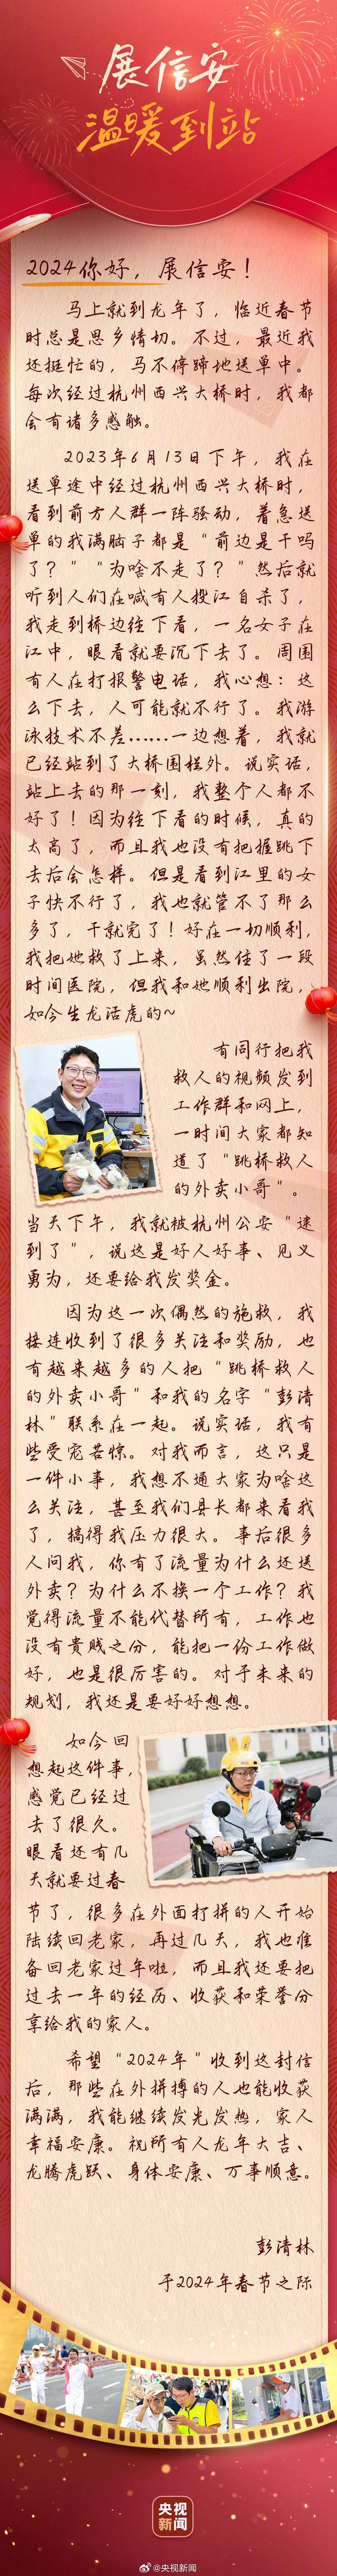 展信安
温暖到站
2024你好，展信安！
马上就到龙年了，临近春节
时总是思乡情切。不过，最近我
还挺忙的，马不停蹄地送单中。
每次经过杭州西兴大桥时，我都
会有诸多感触。
2023年6月13日下午，我在
送单途中经过杭州西兴大桥时，
看到前方人群一阵骚动，着急送
单的我满脑子都是“前边是干吗
了？”“为啥不走了？”然后就
听到人们在喊有人投江自杀了，
我走到桥边往下看，一名女子在
江中，眼看就要沉下去了。周围
有人在打报警电话，我心想：这
么下去，人可能就不行了。我游
泳技术不差……一边想着，我就
已经站到了大桥围栏外。说实话，
站上去的那一刻，我整个人都不
好了！因为往下看的时候，真的
太高了，而且我也没有把握跳下
去后会怎样。但是看到江里的女
子快不行了，我也就管不了那么
多了，干就完了！好在一切顺利，
我把她救了上来，虽然住了一段
时间医院，但我和她顺利出院，
如今生龙活虎的~
有同行把我
救人的视频发到
工作群和网上，
一时间大家都知
道了“跳桥救人
的外卖小哥”。
当天下午，我就被杭州公安“逮
到了”，说这是好人好事、见义
勇为，还要给我发奖金。
因为这一次偶然的施救，我
接连收到了很多关注和奖励，也
有越来越多的人把“跳桥救人
的外卖小哥”和我的名字“彭清
林”联系在一起。说实话，我有
些受宠若惊。对我而言，这只是
一件小事，我想不通大家为啥这
么关注，甚至我们县长都来看我
了，搞得我压力很大。事后很多
人问我，你有了流量为什么还送
外卖？为什么不换一个工作？我
觉得流量不能代替所有，工作也
没有贵贱之分，能把一份工作做
好，也是很厉害的。对于未来的
规划，我还是要好好想想。
如今回
想起这件事，
感觉已经过
去了很久。
眼看还有几
天就要过春
节了，很多在外面打拼的人开始
陆续回老家，再过几天，我也准
备回老家过年啦，而且我还要把
过去一年的经历、收获和荣誉分
享给我的家人。
希望“2024年”收到这封信
后，那些在外拼搏的人也能收获
满满，我能继续发光发热，家人
幸福安康。祝所有人龙年大吉、
龙腾虎跃、身体安康、万事顺意。
彭清林
于2024年春节之际
央视
新闻
@央视新闻